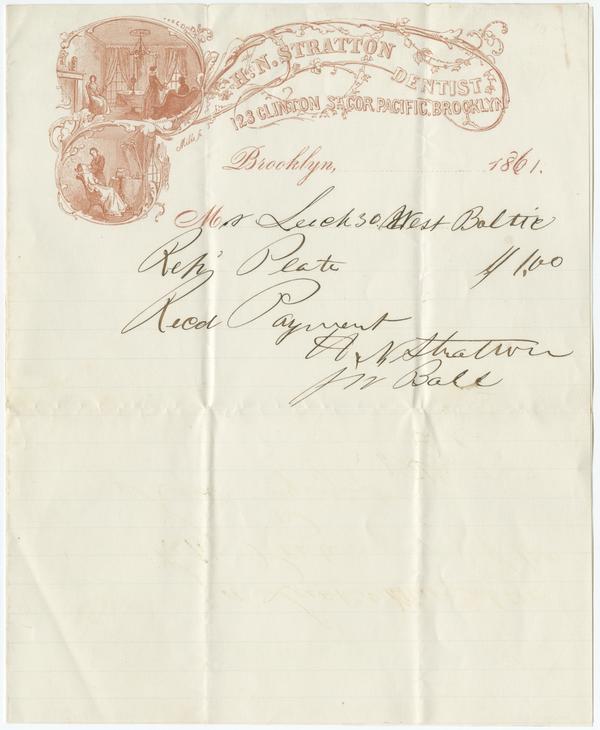 H. N. STRATTON
DENTIST
123 CLINTON St. COR. PACIFIC, BROOKLYN
Brooklyn, 1861.
Mrs Leech 30 West Baltic
Rep'g Plate $1.00
Recd Payment
H N Stratton